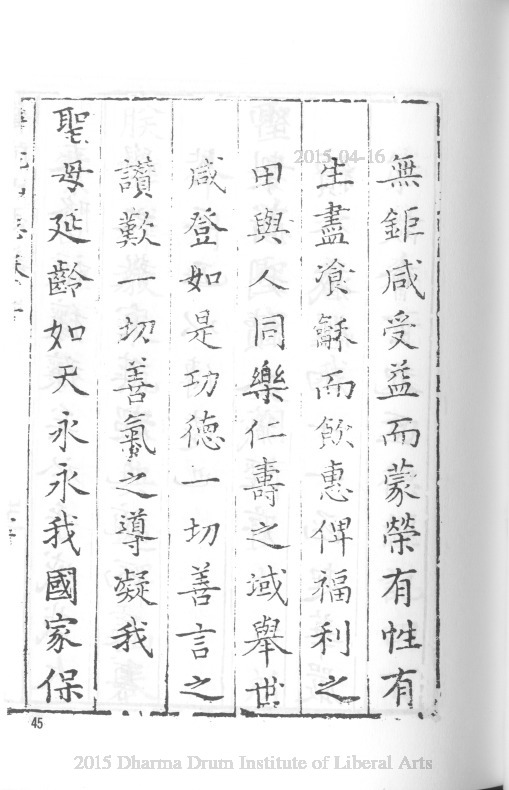 無鉅咸受益而蒙榮有性有
生盡飡龢而飲惠俾福利之
田與人同樂仁壽之域舉世
咸登如是功德一切善言之
讚歎一切善氣之導凝我
聖母延齡如天永永我國家保
45
2015-04-16
2015 Dharma Drum Institute of Liberal Arts